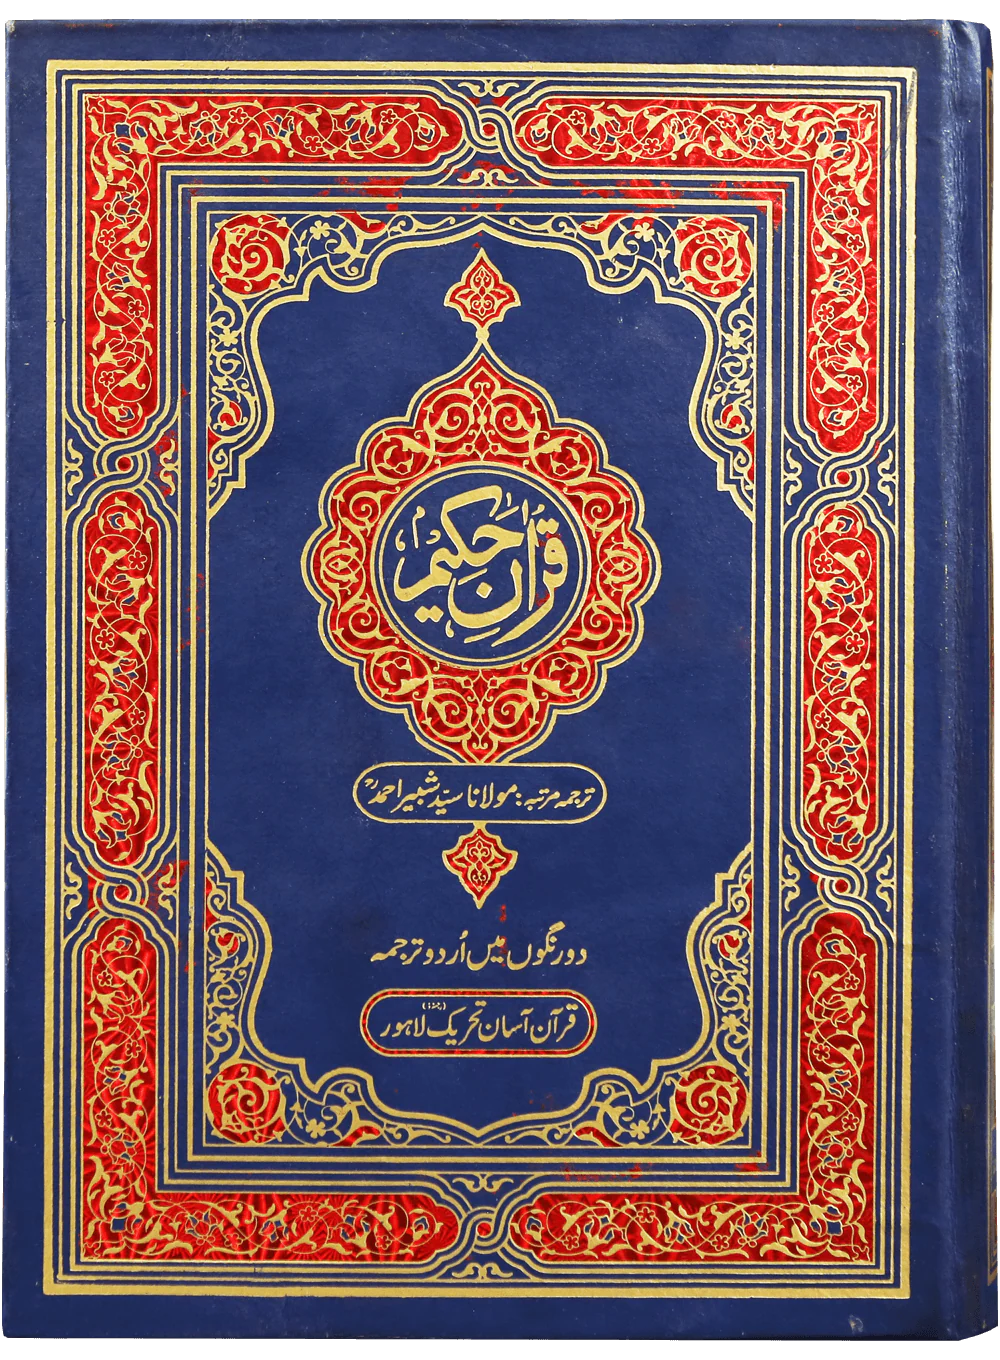 قرآن حکیم
ترجمہ مرتبہ: مولانا سیّد شبیر احمدؒ
دو رنگوں میں اُردو ترجمہ
قرآن آسان تحریک (رجسٹرڈ) لاہور